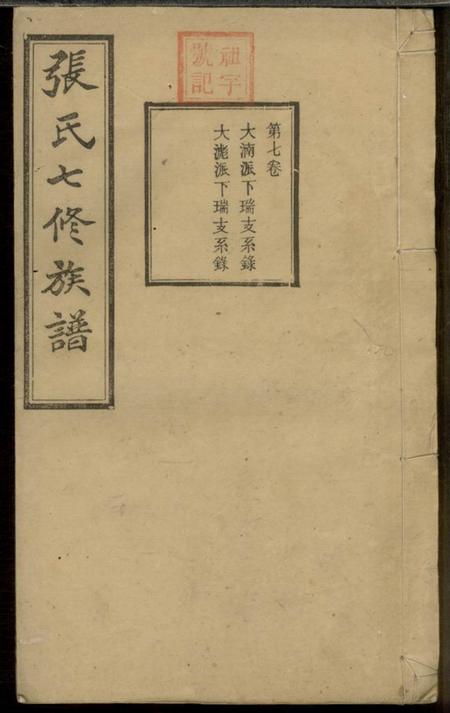 祖字
號記
第七卷
大湳派下瑞支系錄
大滮派下瑞支系錄
張氏七修族譜